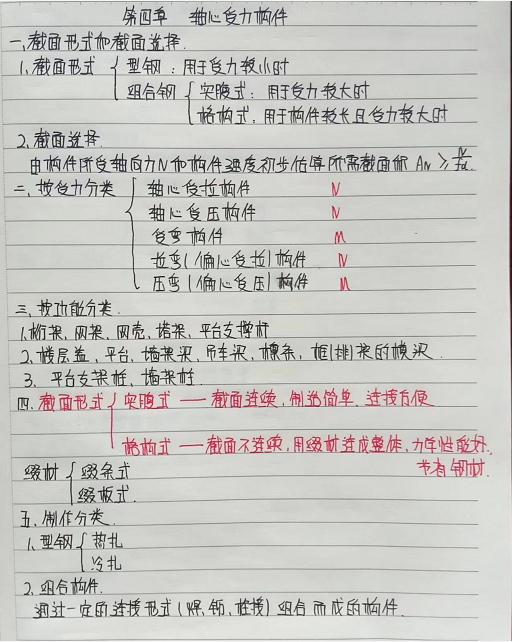 第四章 轴心受力构件
一、截面形式和截面选择.
1、截面形式 { 型钢：用于受力较小时
组合钢 { 实腹式：用于受力较大时
格构式，用于构件较长且受力较大时
2、截面选择.
由构件所受轴向力N和构件强度初步估算所需截面积 An ≥
二、按受力分类 { 轴心受拉构件 N
轴心受压构件 N
受弯构件 M
拉弯(偏心受拉)构件 N
压弯(偏心受压)构件 M
三、按功能分类.
1、桁架、网架、网壳、塔架、平台支撑杆
2、楼层盖、平台、墙架梁、吊车梁、檩条、框(排)架的横梁.
3、平台支架柱、墙架柱.
四、截面形式 { 实腹式 — 截面连续，制造简单、连接方便
格构式 — 截面不连续，用缀材连成整体，力学性能好.
节省钢材.
缀材 { 缀条式
缀板式.
五、制作分类.
1、型钢 { 热扎
冷扎
2、组合构件.
通过一定的连接形式(焊、铆、栓接)组合而成的构件.